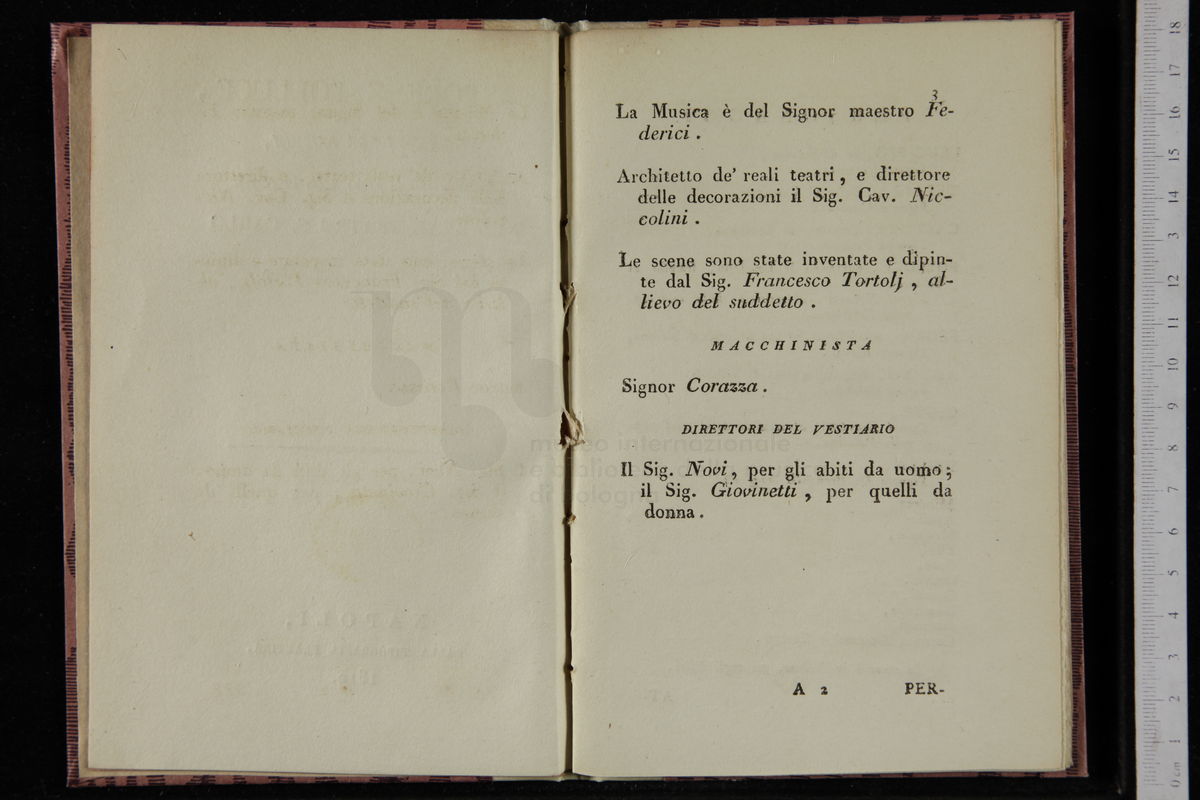 3
La Musica è del Signor maestro Fe-
derici .
Architetto de' reali teatri , e direttore
delle decorazioni il Sig. Cav. Nic-
colini .
Le scene sono state inventate e dipin-
te dal Sig. Francesco Tortolj , al-
lievo del suddetto .
MACCHINISTA
Signor Corazza .
DIRETTORI DEL VESTIARIO
Il Sig. Novi , per gli abiti da uomo ;
il Sig. Giovinetti , per quelli da
donna .
A 2 PER-
museo internazionale
di bologna
0 cm 1 2 3 4 5 6 7 8 9 10 11 12 13 14 15 16 17 18